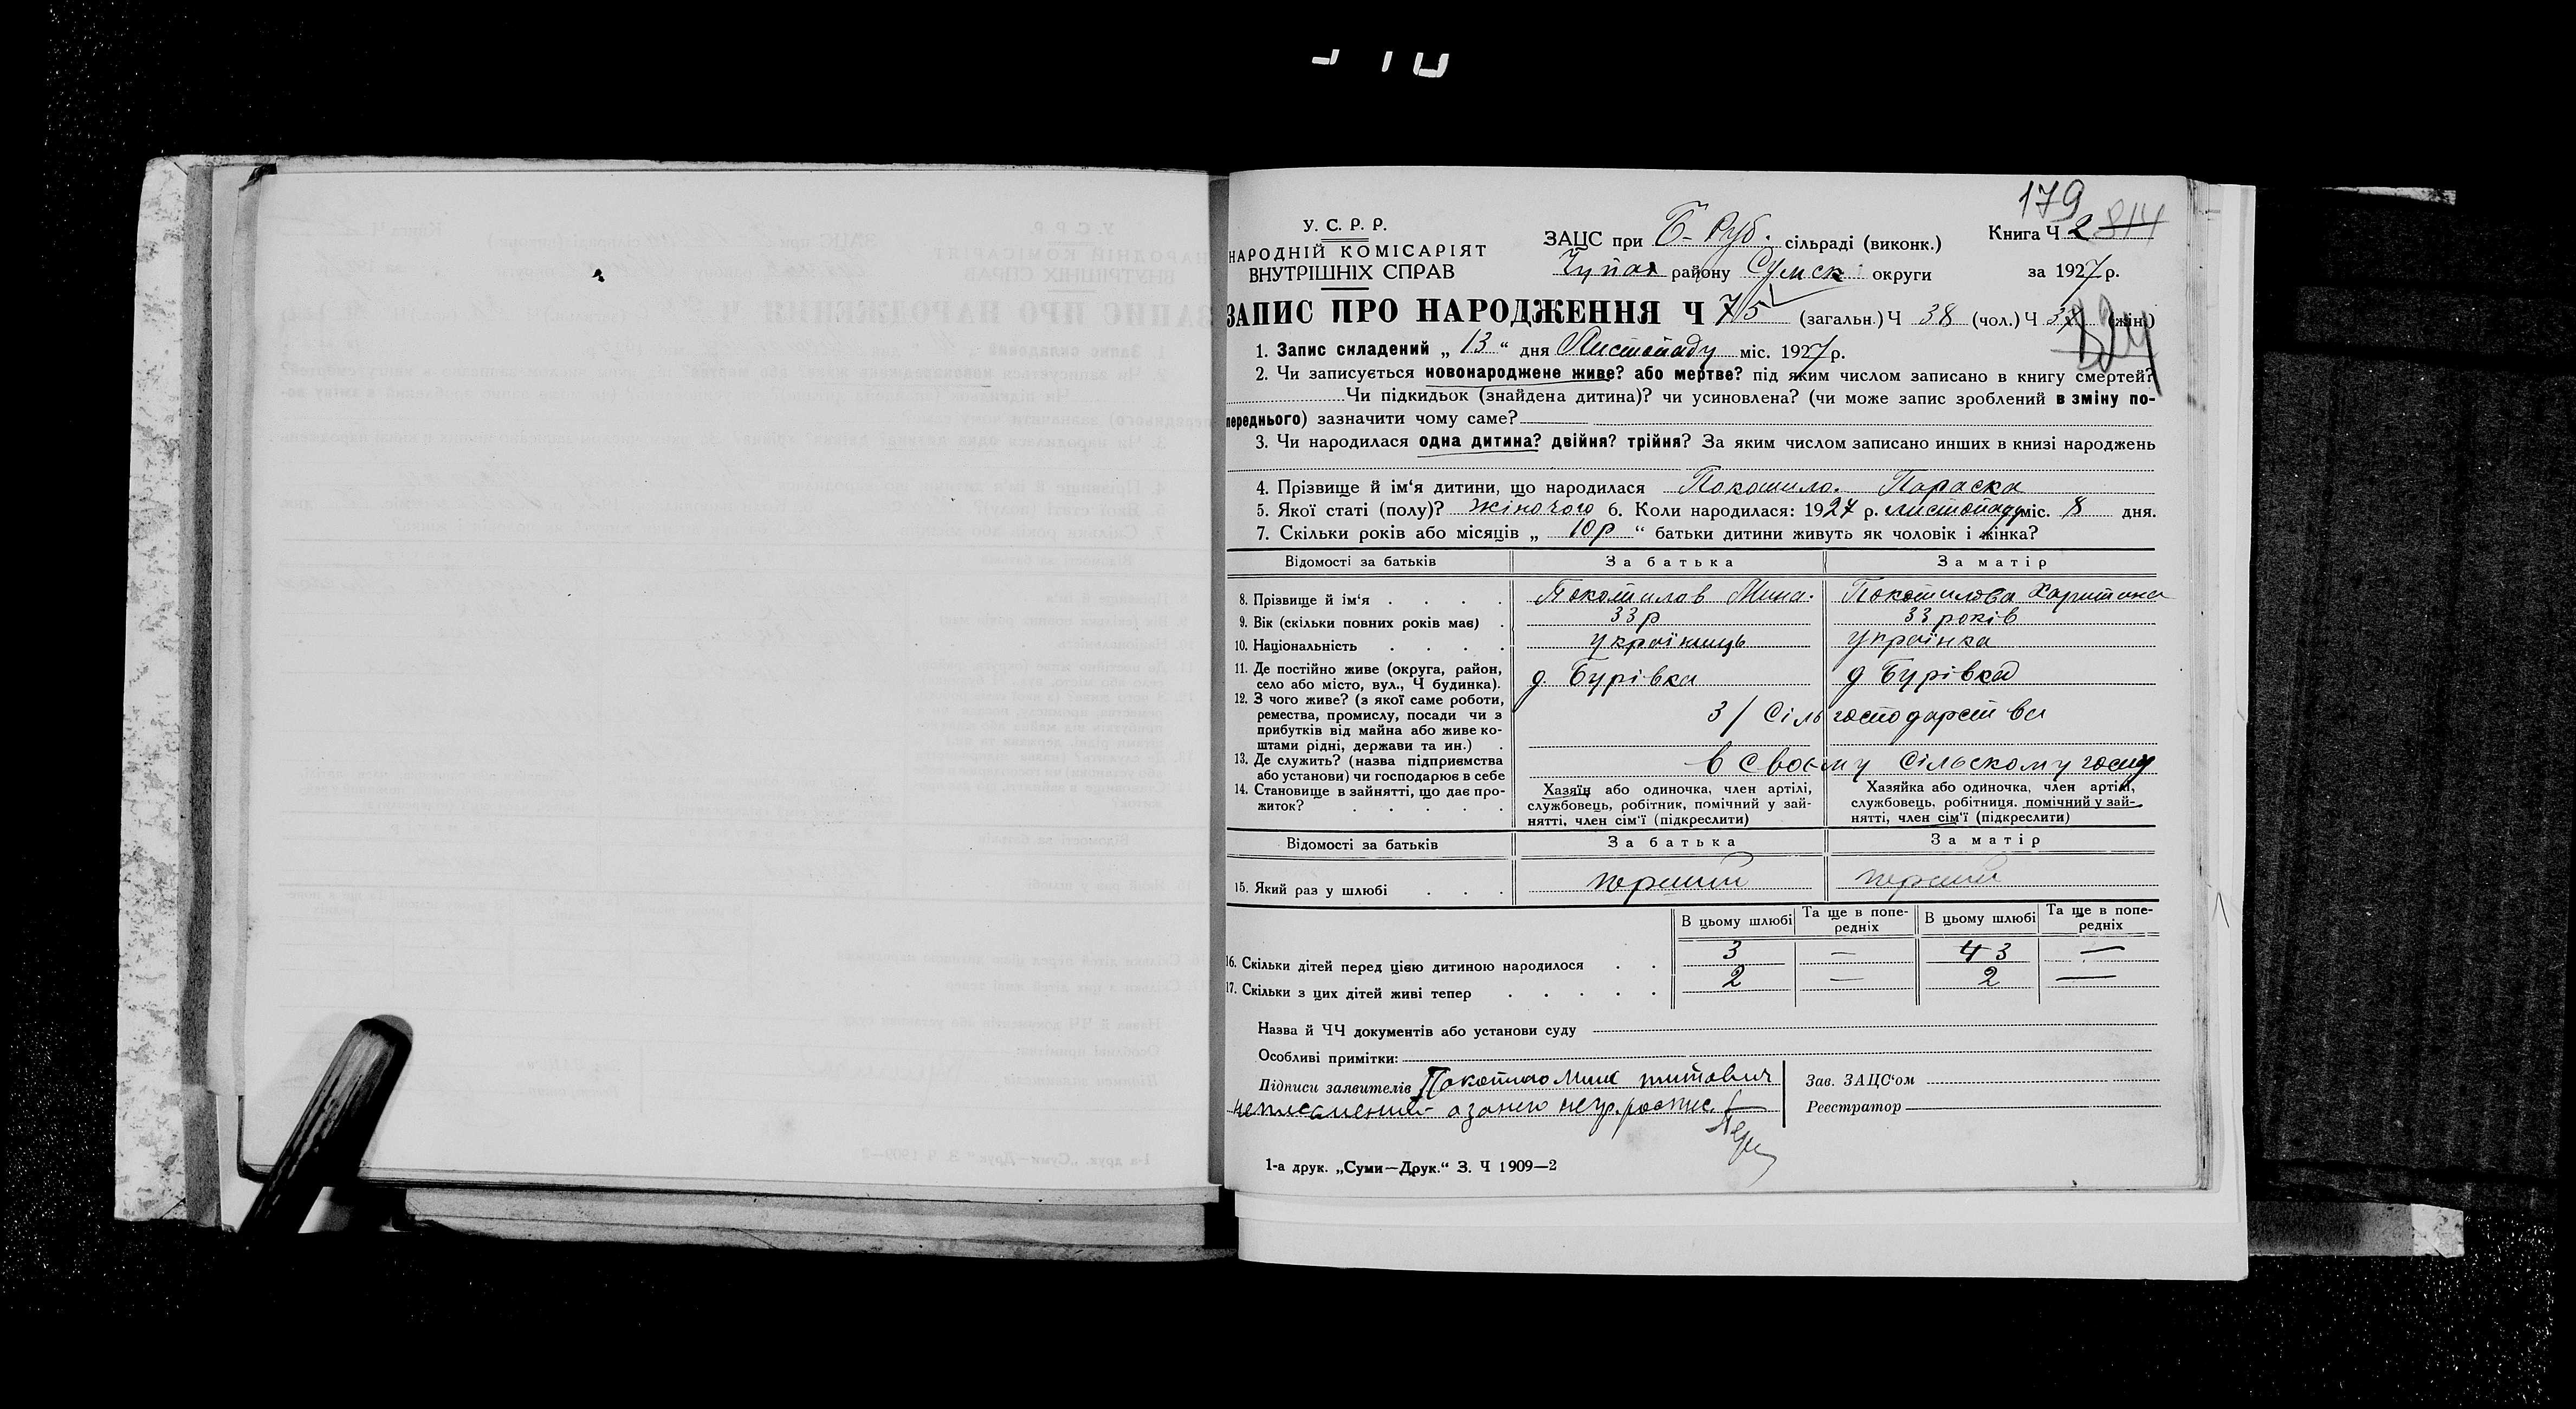 179
У. С. Р. Р.
НАРОДНІЙ КОМІСАРІЯТ
ВНУТРІШНІХ СПРАВ
ЗАЦС при Б-Руб. сільраді (виконк.)
Книга Ч 2 814
району Сумск округи
за 1927 р.
ЗАПИС ПРО НАРОДЖЕННЯ Ч 75 (загальн.) Ч 38 (чол.) Ч (жін.)
1. Запис складений „ 13 “ дня Листопаду міс. 1927 р.
2. Чи записується новонароджене живе? або мертве? під яким числом записано в книгу смертей?
Чи підкидьок (знайдена дитина)? чи усиновлена? (чи може запис зроблений в зміну по-
переднього) зазначити чому саме?
3. Чи народилася одна дитина? двійня? трійня? За яким числом записано инших в книзі народжень
4. Прізвище й ім‘я дитини, що народилася Покотило. Параска
5. Якої статі (полу)? жіночого 6. Коли народилася: 1927 р. листопаду міс. 8 дня.
7. Скільки років або місяців „ 10 р “ батьки дитини живуть як чоловік і жінка?
Відомості за батьків За батька За матір
8. Прізвище й ім‘я . . . . Покотилов Мина. Покотилова Харитина
9. Вік (скільки повних років має) . 33 р 33 років
10. Національність . . . . українець українка
11. Де постійно живе (округа, район,
село або місто, вул., Ч будинка). д. Бурівка д Бурівка
12. З чого живе? (з якої саме роботи,
ремества, промислу, посади чи з
прибутків від майна або живе ко-
штами рідні, держави та ин.) .
З / Сіль господарства
13. Де служить? (назва підприємства
або установи) чи господарює в себе
в своєму сільскому госп
14. Становище в зайнятті, що дає про-
житок? . . . . .
Хазяїн або одиночка, член артілі,
службовець, робітник, помічний у зай-
нятті, член сім‘ї (підкреслити)
Хазяйка або одиночка, член артілі,
службовець, робітниця, помічний у зай-
нятті, член сім‘ї (підкреслити)
Відомості за батьків За батька За матір
15. Який раз у шлюбі . . . перший перший
В цьому шлюбі Та ще в попе-
редніх В цьому шлюбі Та ще в попе-
редніх
16. Скільки дітей перед цією дитиною народилося . . 3 — 4 3 —
17. Скільки з цих дітей живі тепер . . . . . 2 — 2 —
Назва й ЧЧ документів або установи суду
Особливі примітки:
Підписи заявителів Покотило Мина титович
неписьмений а занего
Зав. ЗАЦС‘ом
Реєстратор
1-а друк. „Суми—Друк.“ З. Ч 1909—2